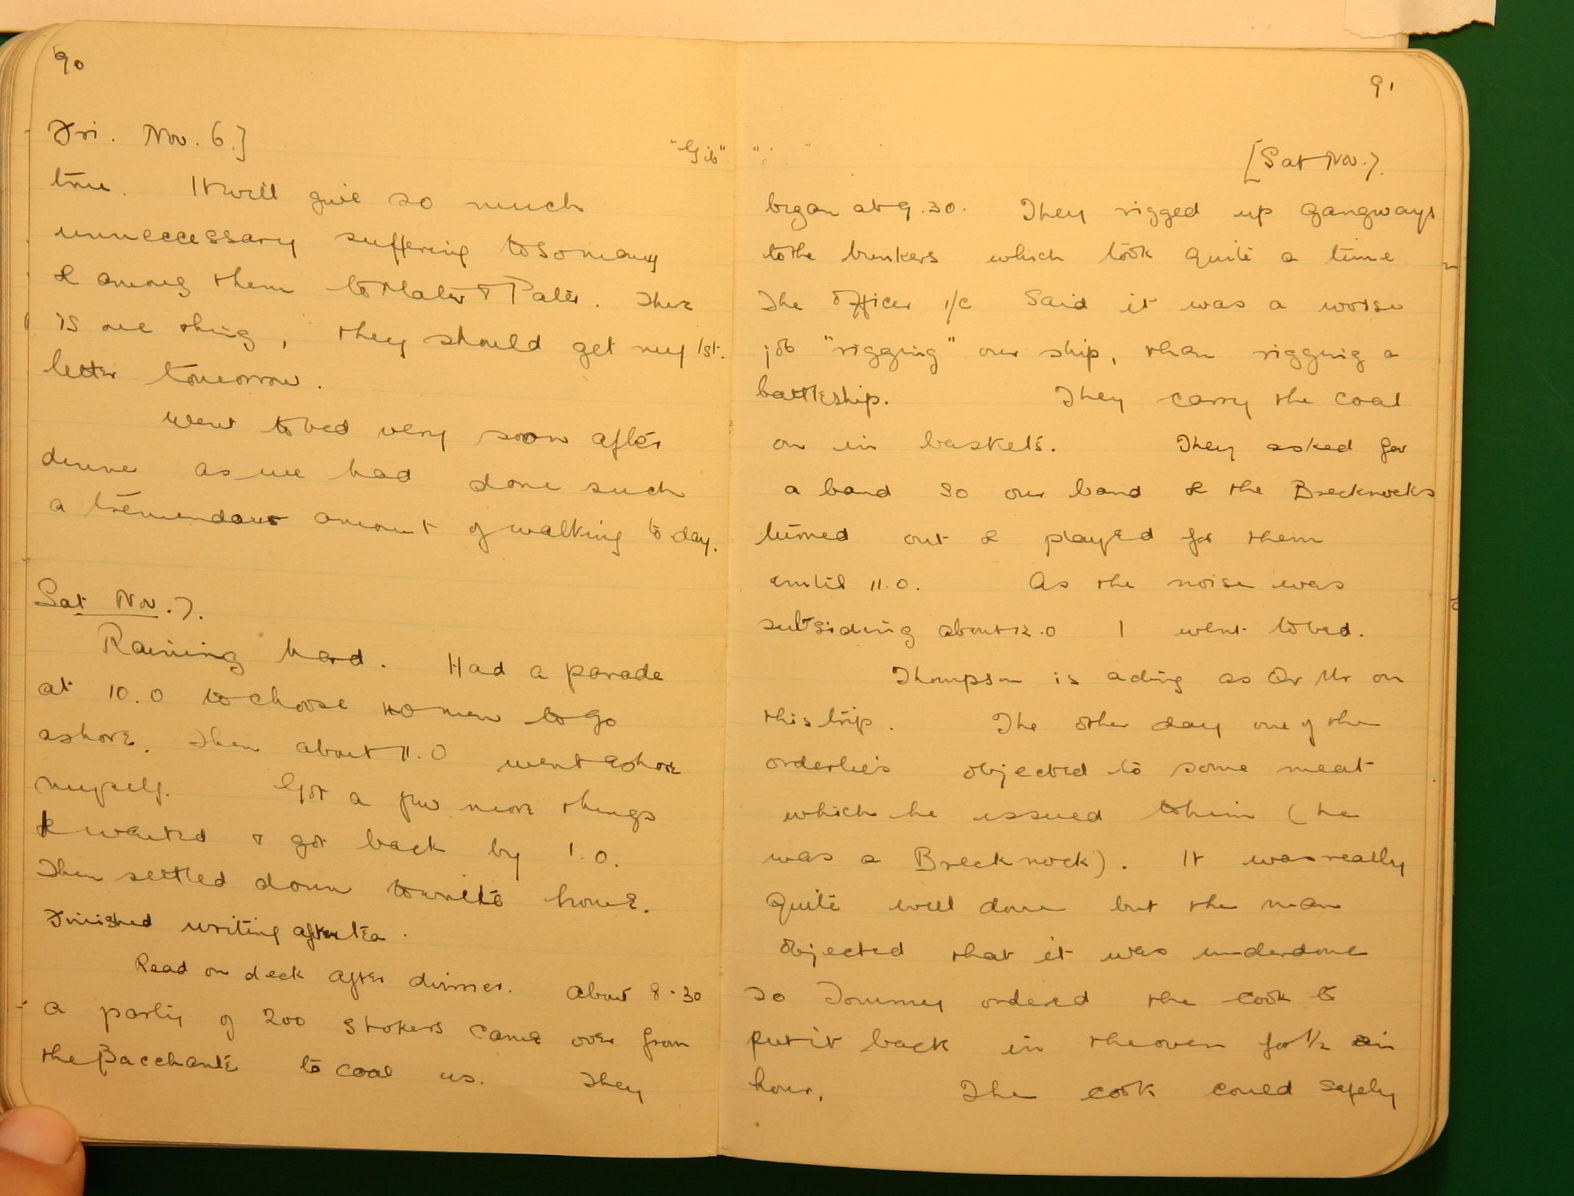 90
Fri. Nov. 6.]
"Gib"
true. It will give so much
unneccessary suffering to so many
& among them to Mater & Pater. There
is one thing, they should get my 1st.
letter tomorrow.
Went to bed very soon after
dinner as we had done such
a tremendous amount of walking to day.
Sat Nov. 7.
Raining hard. Had a parade
at 10.0 to choose 40 men to go
ashore. Then about 11.0 went ashore
myself. Got a few more things
I wanted & got back by 1.0.
Then settled down to write home.
Finished writing after tea.
Read on deck after dinner. About 8.30
a party of 200 stokers came over from
the Bacchante to coal us. They
91
[Sat Nov. 7.
began at 9.30. They rigged up gangways
to the bunkers which took quite a time
The Officer i/c said it was a worse
job "rigging" our ship, than rigging a
battleship. They carry the coal
on in baskets. They asked for
a band so our band & the Brecknocks
turned out & played for them
until 11.0. As the noise was
subsiding about 12.0 I went to bed.
Thompson is acting as Qr Mr on
this trip. The other day one of the
orderlies objected to some meat
which he issued to him (he
was a Brecknock). It was really
quite well done but the man
objected that it was underdone
so Tommy ordered the cook to
put it back in the oven for ½ an
hour. The cook could safely